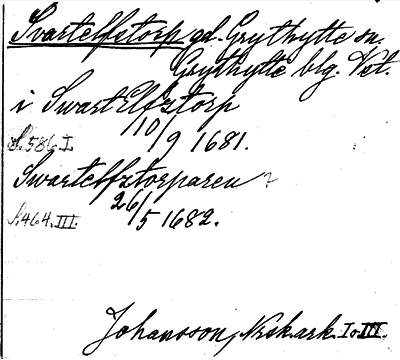 Svartelfstorp gd. Grythytte sn.
Grythytte blg. Vst.
i SwartElfztorp
10/9 1681.
S. 586. I.
Swartelfztorparen
26/5 1682.
S. 464. III.
Johansson, Nskark. I o. III.